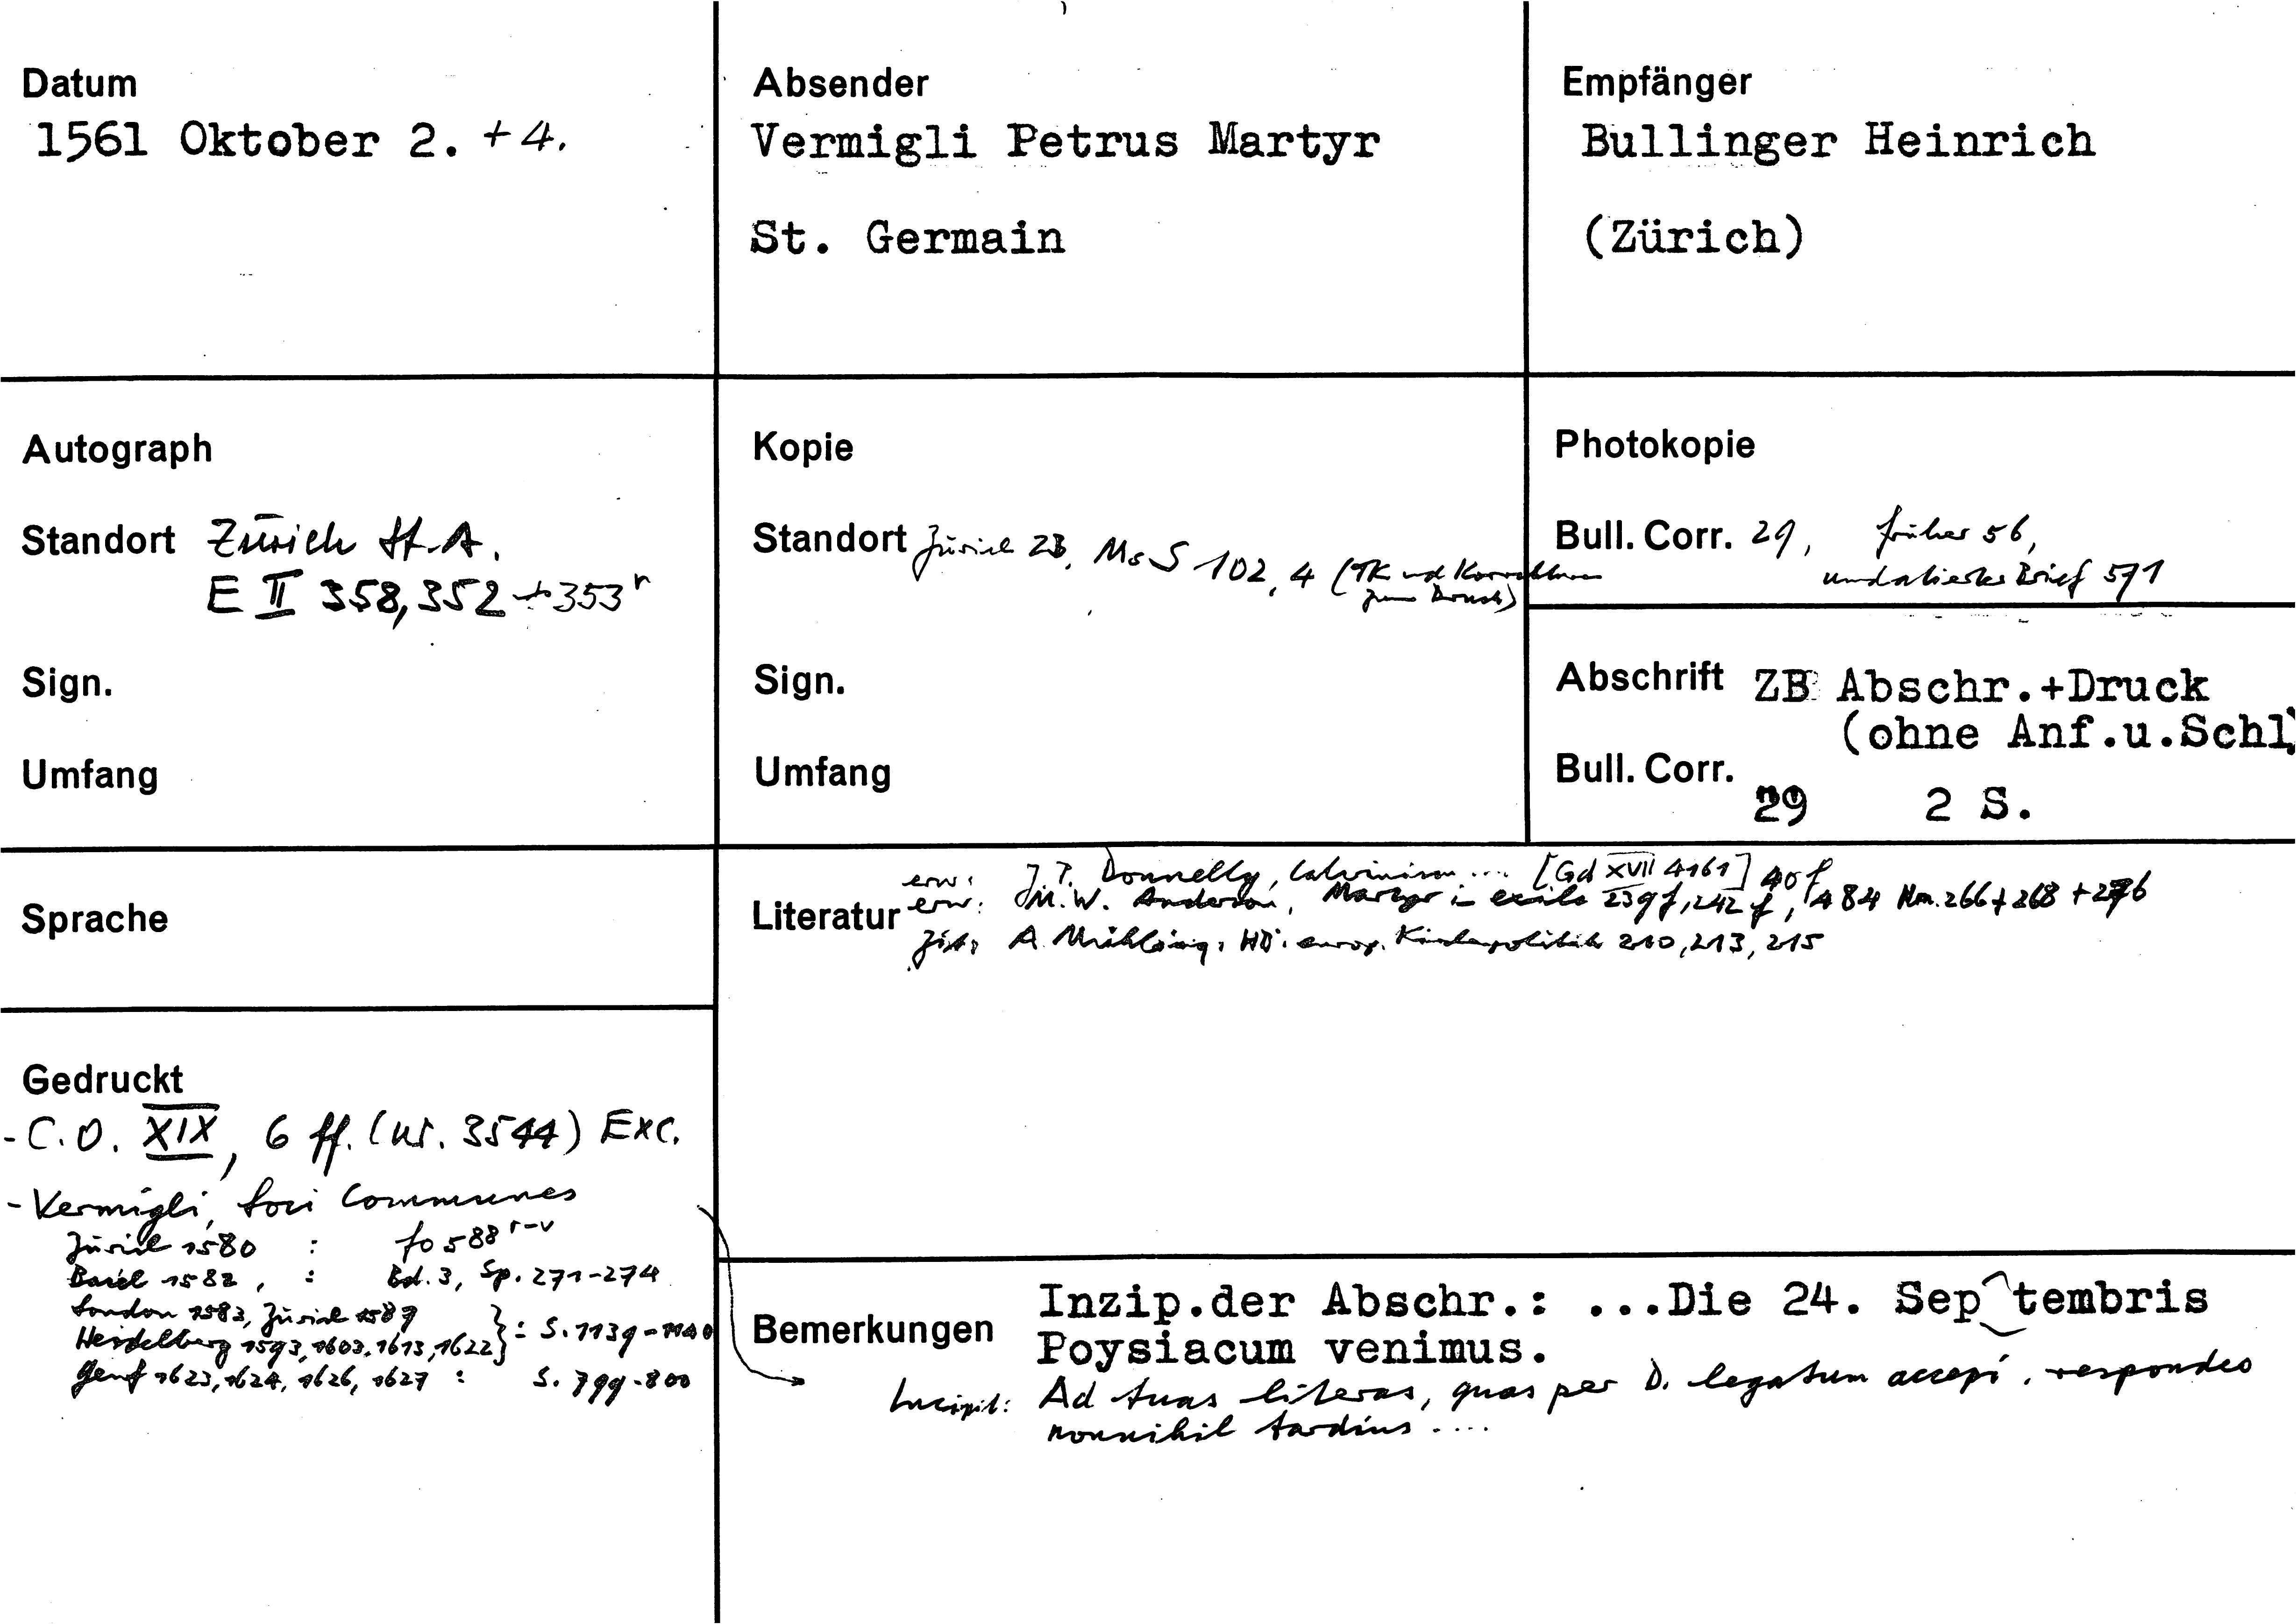 Datum
1561 Oktober 2. + 4.
Absender
Vermigli Petrus Martyr
St. Germain
Empfänger
Bullinger Heinrich
(Zürich)
Autograph
Standort Zürich St.A.
E II 358, 352 + 353r
Sign.
Umfang
Kopie
Standort Zürich ZB, Ms S 102, 4 (TK und Korrekturen
zum Druck)
Sign.
Umfang
Photokopie
Bull. Corr. 29, früher 56,
undatierter Brief 571
Abschrift ZB Abschr.+Druck
(ohne Anf.u.Schl)
Bull. Corr.
29 2 S.
Sprache
Literatur
erw: J.P. Donnelly, Calvinism ... [Gd XVII 4161] 40 f
erw: M.W. Anderson, Martyr in exile 239 f, 242 f, 484 Nm. 266 + 268 + 276
zit: A. Mühling, HB: europ. Kirchenpolitik 210, 213, 215
Gedruckt
- C.O. XIX, 6 ff. (nr. 3544) Exc.
- Vermigli, Loci Communes
Zürich 1580 : fo 588 r-v
Basel 1582, : Bd. 3, Sp. 271-274
London 1583, Zürich 1587
Heidelberg 1593, 1603, 1613, 1622 } : S. 1139-1140
Genf 1623, 1624, 1626, 1627 : S. 799-800
Bemerkungen
Inzip.der Abschr.: ...Die 24. Septembris
Poysiacum venimus.
Incipit: Ad tuas literas, quas per D. legatum accepi, respondeo
nonnihil tardius ....